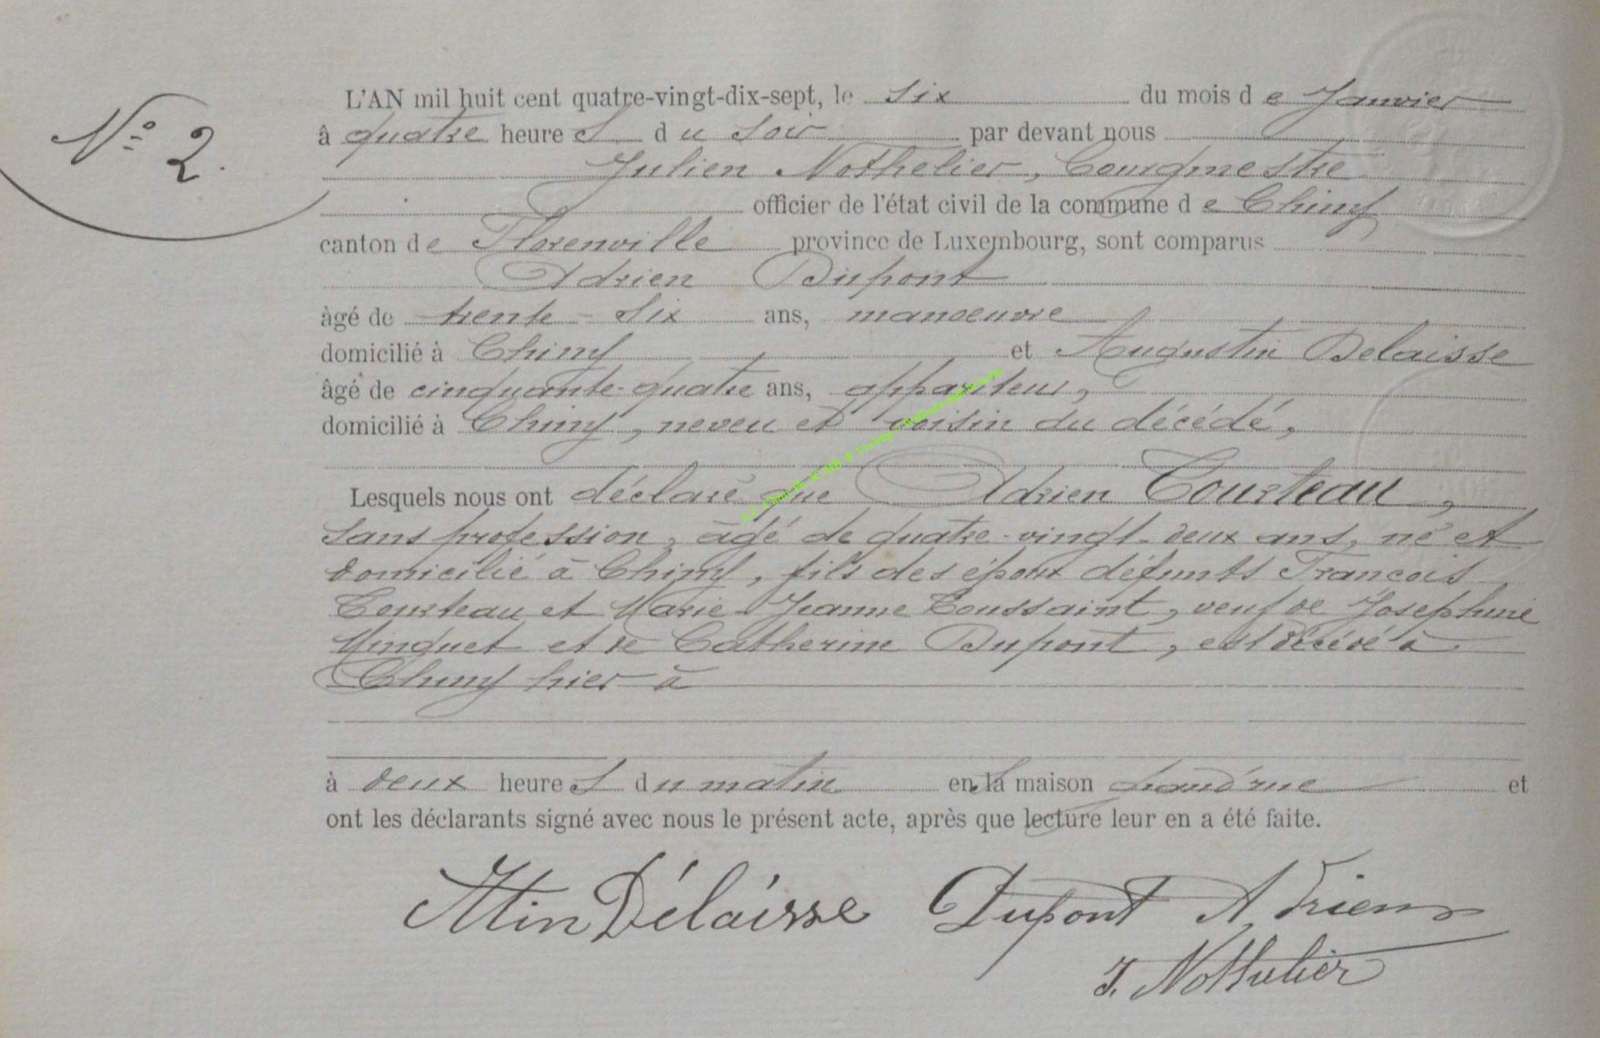 L'AN mil huit cent quatre-vingt-dix-sept, le six du mois de Janvier
N° 2.
à quatre heures du soir par devant nous
Julien Nothelier, Bourgmestre
officier de l'état civil de la commune de Chiny
canton de Florenville province de Luxembourg, sont comparus
Adrien Dupont
âgé de trente-six ans, manoeuvre
domicilié à Chiny et Augustin Delaisse
âgé de cinquante-quatre ans, appariteur,
domicilié à Chiny, neveu et voisin du décédé,
Lesquels nous ont déclaré que Adrien Courteau,
sans profession, âgé de quatre-vingt-deux ans, né et
domicilié à Chiny, fils des époux défunts Francois
Courteau et Marie-Jeanne Toussaint, veuf de Josephine
Minguet et de Catherine Dupont, est décédé à
Chiny hier à
à deux heures du matin en sa maison Grand'rue et
ont les déclarants signé avec nous le présent acte, après que lecture leur en a été faite.
Atin Délaisse Dupont Adrien
J. Nothelier